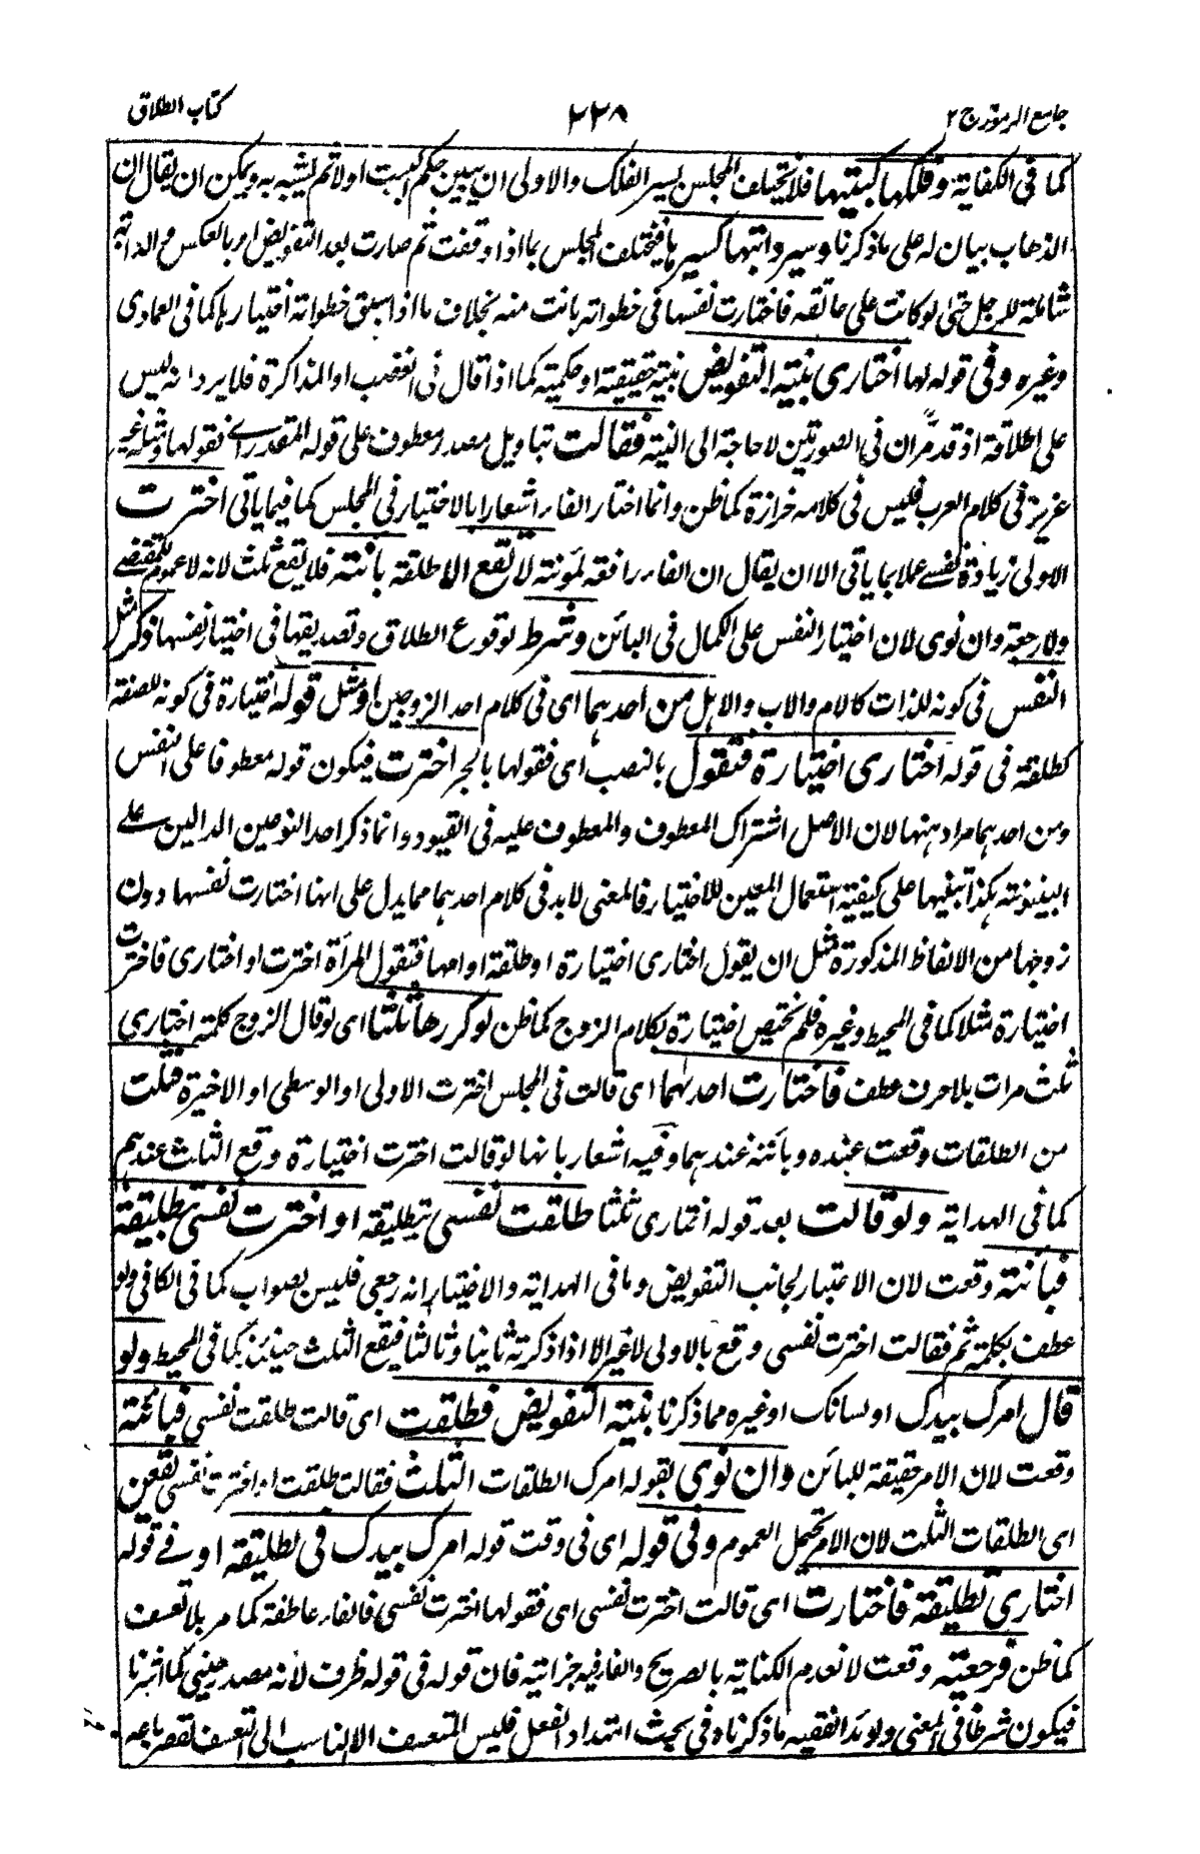 جامع الرموز ج ٢
٢٢٨
كتاب الطلاق
كما فى الكفاية وفلكها كبيتها فلا يختلف المجلس بسير الفلك والاولى ان يبين حكم البيت اولا ثم يشبه به ويمكن ان يقال ان
الذهاب بيان له على ما ذكرنا وسير دابتها كسيرها فيختلف المجلس بما اذا وقفت ثم صارت بعد التفويض او بالعكس والدابة
شاملة للرجل حتى لو كانت على عاتقه فاختارت نفسها فى خطواته بانت منه بخلاف ما اذا سبق خطواته اختيارها كما فى العمادى
وغيره وفى قوله لها اختارى بنية التفويض نية حقيقية او حكمية كما اذا قال فى الغضب او المذاكرة فلا يرد انه ليس
على اطلاقه اذ قد مر ان فى الصورتين لا حاجة الى النية فقالت بتاويل مصدر معطوف على قوله المقدر اى فقولها ومثله غير
عزيز فى كلام العرب فليس فى كلامه خرازة كما ظن وانما اختار الفاء اشعارا بالاختيار فى المجلس كما فيما ياتى اخترت
الاولى زيادة نفسى عملا بما ياتى الا ان يقال ان الفاء رافقه لمؤنته لا تقع الا طلقة بائنة فلا يقع ثلث لانه لا عموم للمقتضى
ولا رجعية وان نوى لان اختيار النفس على الكمال فى البائن وشرط لوقوع الطلاق وتصديقها فى اختيار نفسها ذكر مثل
النفس فى كونه للذات كالام والاب والاهل من احدهما اى فى كلام احد الزوجين او مثل قوله اختيارة فى كونه للصفة
كطلقة فى قوله اختارى اختيارة فتقول بالنصب اى فقولها بالجر اخترت فيكون قوله معطوفا على النفس
ومن احدهما مراد ههنا لان الاصل اشتراك المعطوف والمعطوف عليه فى القيود وانما ذكر احد النوعين الدالين على
البينونة هكذا تنبيها على كيفية استعمال المعين للاختيار فالمعنى لا بد فى كلام احدهما مما يدل على انها اختارت نفسها دون
زوجها من الالفاظ المذكورة مثل ان يقول اختارى اختيارة او طلقة او امها فتقول المرأة اخترت او اختارى فاخترت
اختيارة مثلا كما فى المحيط وغيره فلم يختص اختيارة بكلام الزوج كما ظن لو كررها ثلثا اى لو قال الزوج كلمة اختيارى
ثلث مرات بلا حرف عطف فاختارت احدٮهما اى قالت فى المجلس اخترت الاولى او الوسطى او الاخيرة فثلث
من الطلقات وقعت عنده وبائنة عندهما وفيه اشعار بانها لو قالت اخترت اختيارة وقع الثلث عندهم
كما فى الهداية ولو قالت بعد قوله اختارى ثلثا طلقت نفسى بتطليقة او اخترت نفسى بتطليقة
فبائنة وقعت لان الاعتبار لجانب التفويض وما فى الهداية والاختيار انه رجعى فليس بصواب كما فى الكافى ولو
عطف بكلمة ثم فقالت اخترت نفسى وقع بالاولى لا غير الا اذا ذكرته ثانيا وثالثا فيقع الثلث حينئذ كما فى المحيط ولو
قال امرك بيدك او لسانك او غيره مما ذكرنا بنية التفويض فطلقت اى قالت طلقت نفسى فبائنة
وقعت لان الامر حقيقة للبائن وان نوى بقوله امرك الطلقات الثلث فقالت طلقت او اخترت نفسى يقعن
اى الطلقات الثلث لان الامر يحتمل العموم وفى قوله اى فى وقت قوله امرك بيدك فى تطليقة او فى قوله
اختارى تطليقة فاختارت اى قالت اخترت نفسى اى فقولها اخترت نفسى فالفاء عاطفة كما مر بلا تعسف
كما ظن فرجعية وقعت لانعدم الكناية بالصريح والفاء فيه جزائية فان قوله فى قوله ظرف لانه مصدر حينى كما اشرنا
فيكون شرطا فى المعنى ولو تدا لفقيه ما ذكرناه فى بحث امتداد الفعل فليس المتعسف الا الناسب الى التعسف لقصر باعه